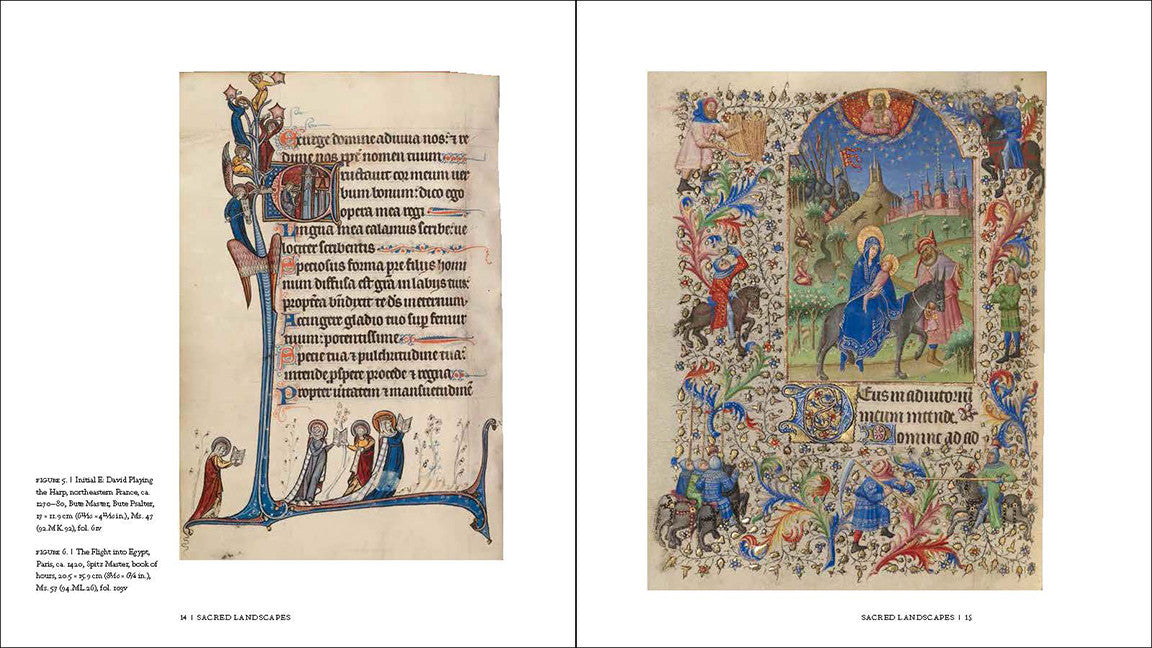 Exurge domine adiuva nos: ⁊ re
dime nos ppt nomen tuum
Eructavit cor meum ver
bum bonum: dico ego
opera mea regi
Lingua mea calamus scribe: ve
lociter scribentis
Speciosus forma pre filiis homi
num diffusa est gra in labiis tuis:
propterea bndixit te ds ineternum.
Accingere gladio tuo sup femur
tuum: potentissime
Specie tua ⁊ pulchritudine tua:
intende, pspere procede ⁊ regna
Propter vitatem ⁊ mansuetudine
FIGURE 5. | Initial E: David Playing
the Harp, northeastern France, ca.
1270–80, Bute Master, Bute Psalter,
17 × 11.9 cm (6 11/16 × 4 11/16 in.), Ms. 47
(92.MK.92), fol. 61v
FIGURE 6. | The Flight into Egypt,
Paris, ca. 1420, Spitz Master, book of
hours, 20.5 × 15.9 cm (8 1/16 × 6 1/4 in.),
Ms. 57 (94.ML.26), fol. 103v
14 | SACRED LANDSCAPES
Deus in adiutoriu
meum intende.
Domine ad ad
SACRED LANDSCAPES | 15